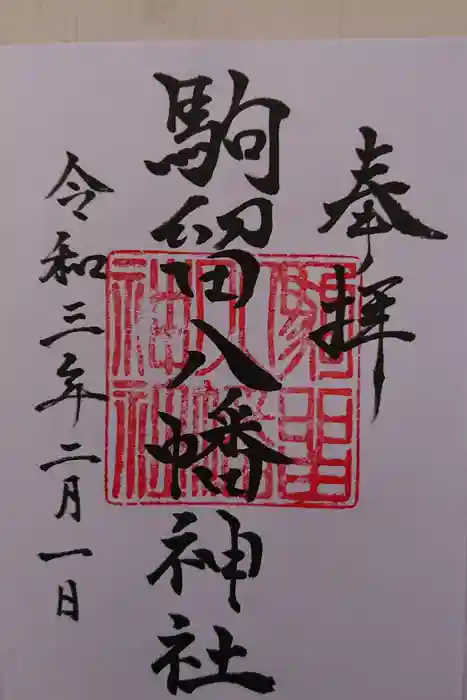 奉拝
駒留八幡神社
令和三年二月一日
駒留
八幡
神社